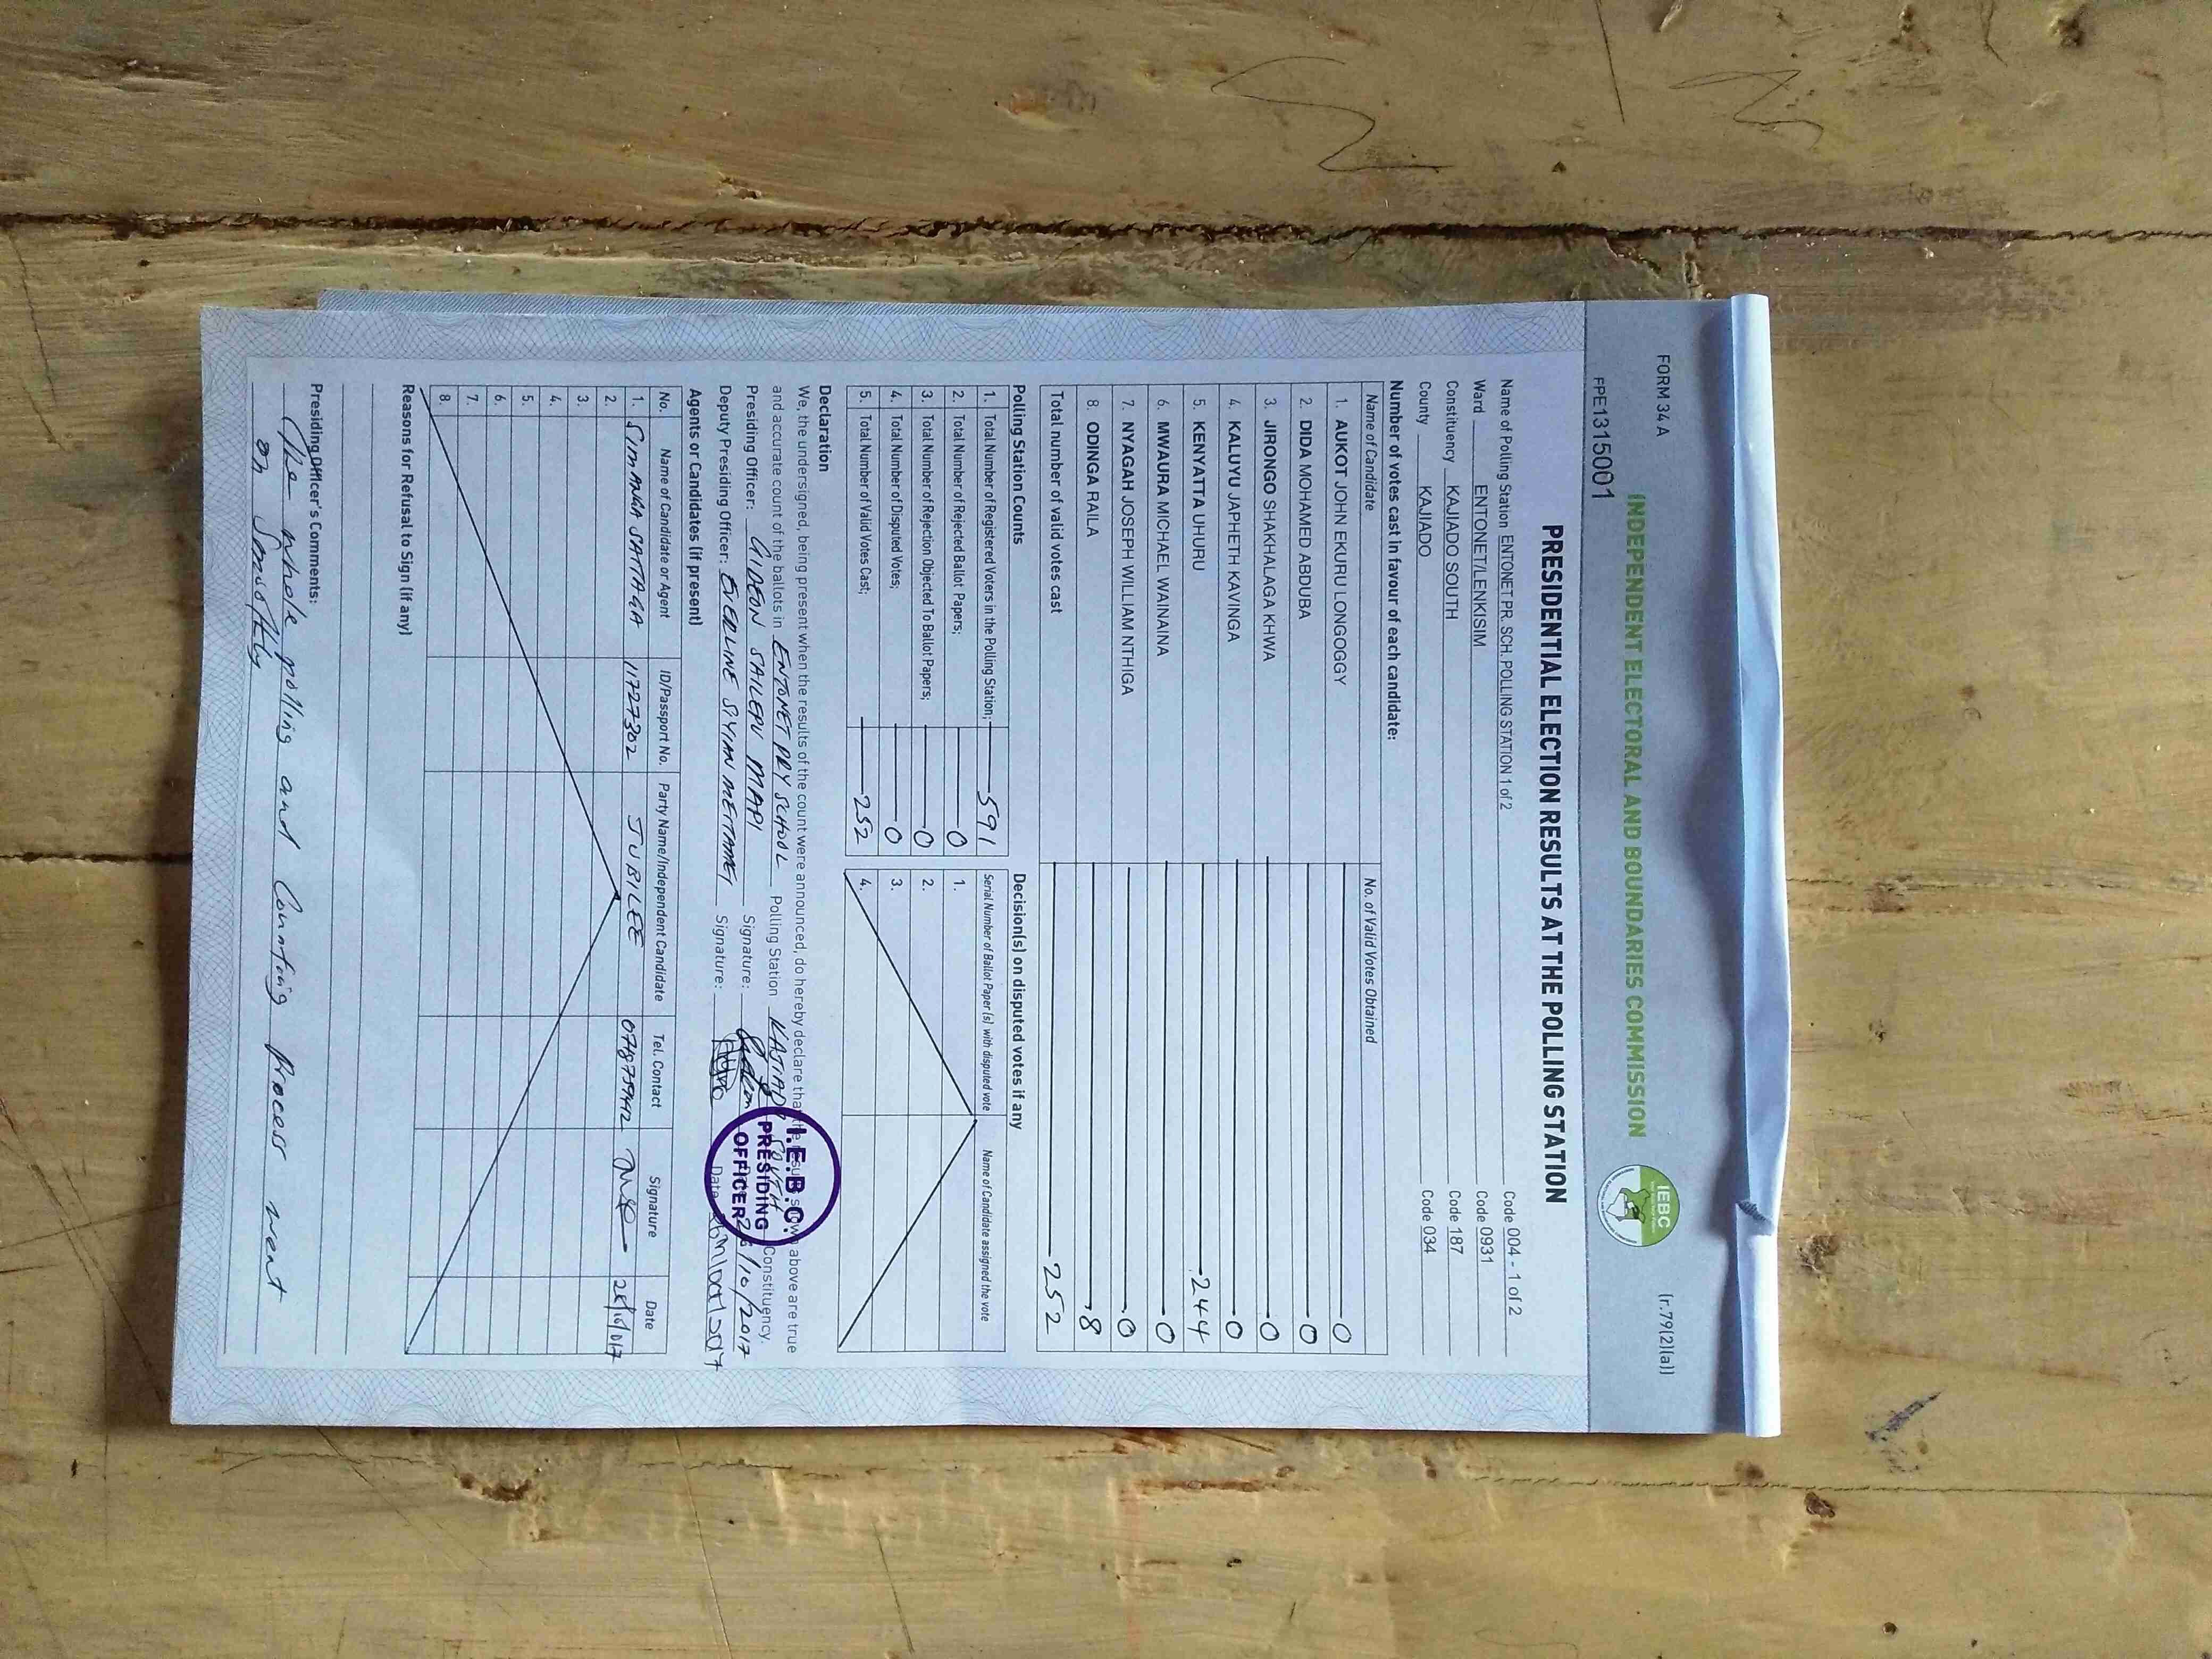 FORM 34 A
(r.79(2)(a))
INDEPENDENT ELECTORAL AND BOUNDARIES COMMISSION
IEBC
FPE1315001
PRESIDENTIAL ELECTION RESULTS AT THE POLLING STATION
Name of Polling Station ENTONET PR. SCH. POLLING STATION 1 of 2 Code 004 - 1 of 2
Ward ENTONET/LENKISIM Code 0931
Constituency KAJIADO SOUTH Code 187
County KAJIADO Code 034
Number of votes cast in favour of each candidate:
Name of Candidate No. of Valid Votes Obtained
1. AUKOT JOHN EKURU LONGOGGY 0
2. DIDA MOHAMED ABDUBA 0
3. JIRONGO SHAKHALAGA KHWA 0
4. KALUYU JAPHETH KAVINGA 0
5. KENYATTA UHURU 244
6. MWAURA MICHAEL WAINAINA 0
7. NYAGAH JOSEPH WILLIAM NTHIGA 0
8. ODINGA RAILA 8
Total number of valid votes cast 252
Polling Station Counts
1. Total Number of Registered Voters in the Polling Station; 591
2. Total Number of Rejected Ballot Papers; 0
3. Total Number of Rejection Objected To Ballot Papers; 0
4. Total Number of Disputed Votes; 0
5. Total Number of Valid Votes Cast; 252
Decision(s) on disputed votes if any
Serial Number of Ballot Paper (s) with disputed vote Name of Candidate assigned the vote
1.
2.
3.
4.
Declaration
We, the undersigned, being present when the results of the count were announced, do hereby declare that the results shown above are true
and accurate count of the ballots in ENTONET PRY SCHOOL Polling Station KAJIADO SOUTH Constituency.
Presiding Officer: GIDEON SAILEPU MAPI Signature: Date 26/10/2017
Deputy Presiding Officer: EVERLINE SIYIAN Signature: Date
I.E.B.C.
PRESIDING
OFFICER
Agents or Candidates (if present)
No. Name of Candidate or Agent ID/Passport No. Party Name/Independent Candidate Tel. Contact Signature Date
1. SIMANGA SATAGA 11727302 JUBILEE
2.
3.
4.
5.
6.
7.
8.
Reasons for Refusal to Sign (if any)
Presiding Officer's Comments:
The whole polling and Counting process went
on Smoothly